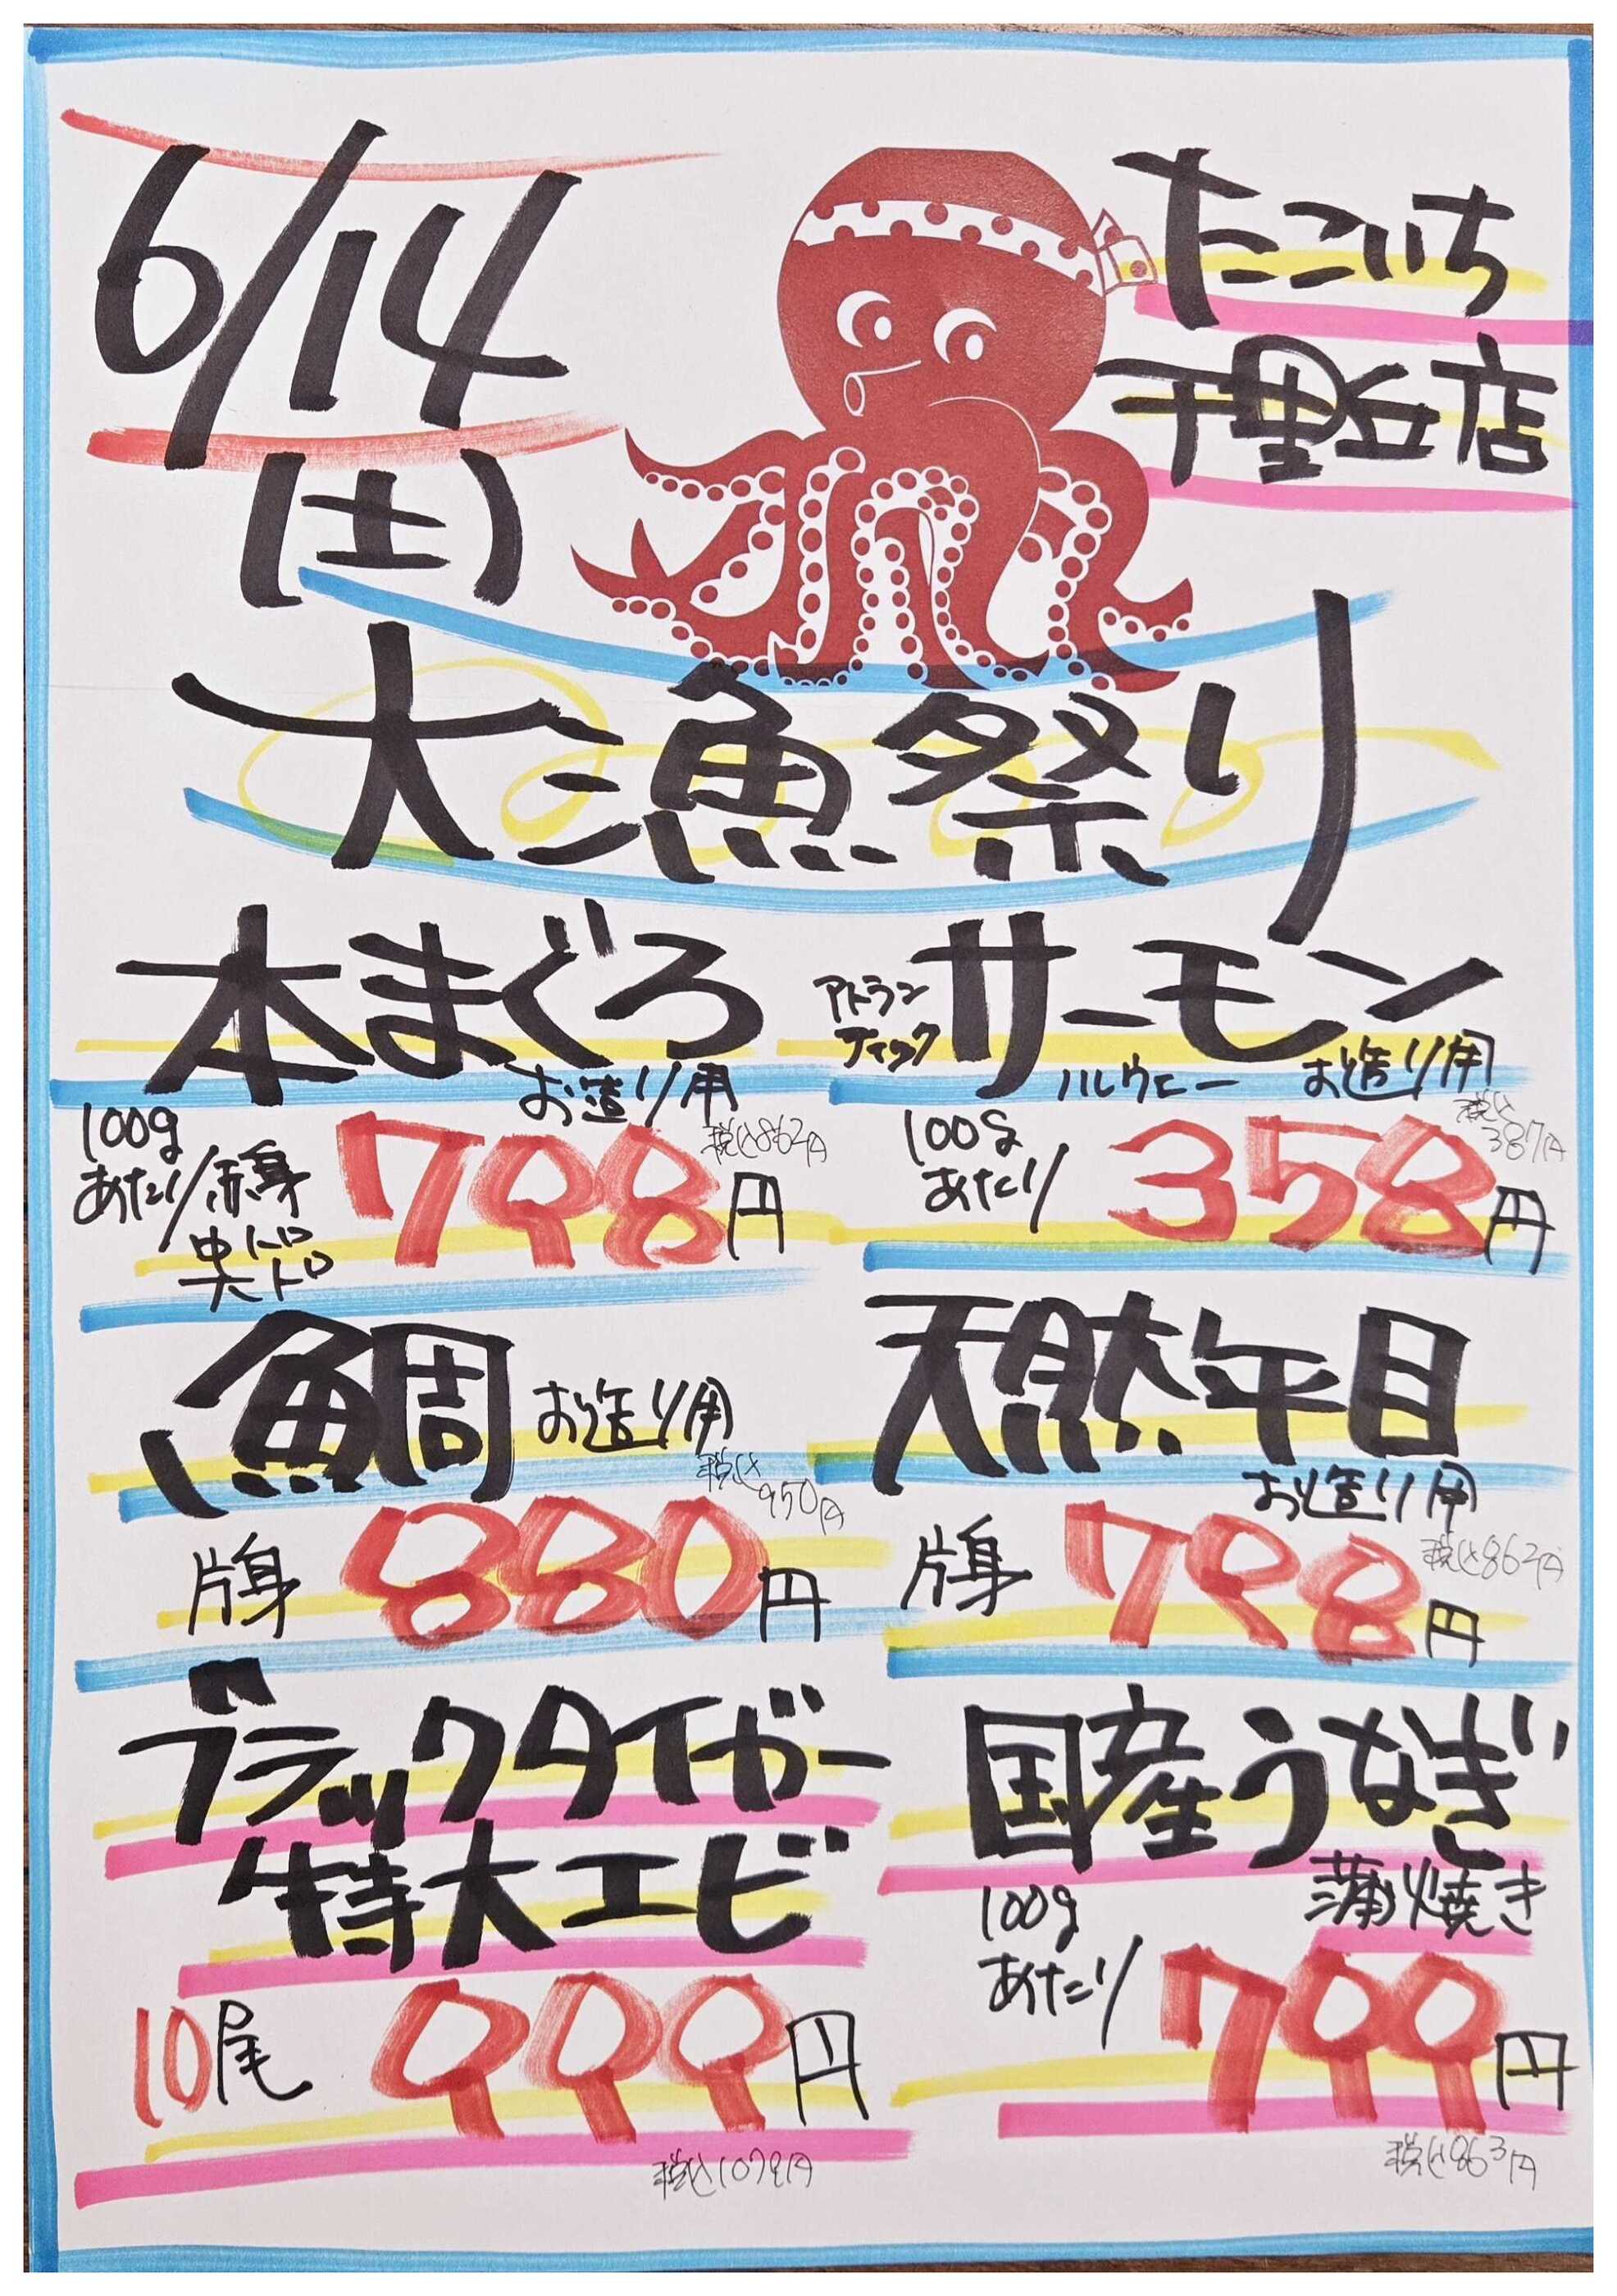 6/14
(土)
たこいち
千里丘店
大漁祭り
本まぐろ
お造り用
100g
あたり/赤身
中トロ
大トロ
798円
税込862円
アトラン
ティック
サーモン
ノルウェー お造り用
100g
あたり/
358円
税込
387円
鯛 お造り用
片身 880円
税込
950円
天然平目
お造り用
片身 798円
税込862円
ブラックタイガー
特大エビ
10尾 999円
税込1079円
国産うなぎ
蒲焼き
100g
あたり/
799円
税込863円